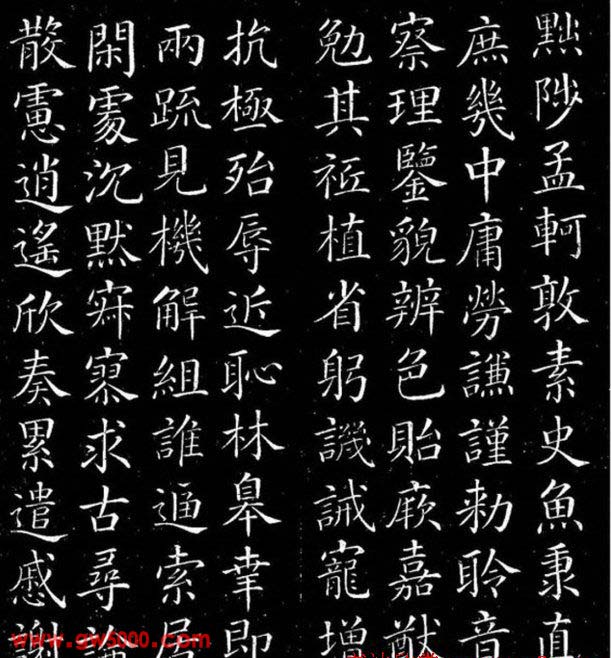 黜陟孟軻敦素史魚秉直
庶幾中庸勞謙謹勑聆音
察理鑒貌辨色貽厥嘉猷
勉其祗植省躬譏誡寵增
抗極殆辱近恥林皋幸即
兩疏見機解組誰逼索居
閑處沉默寂寥求古尋論
散慮逍遙欣奏累遣慼謝
www.gw5000.com